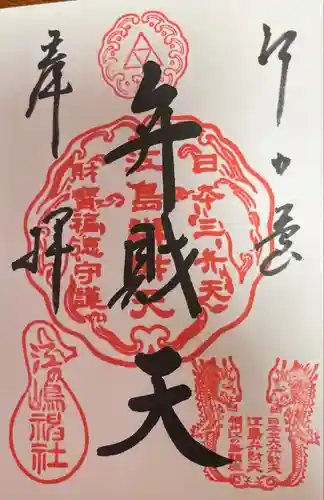 江の島
弁財天
奉拝
日本三弁天
江島弁財天
財寳福徳守護
江嶋神社
日本三大弁財天
江島弁財天